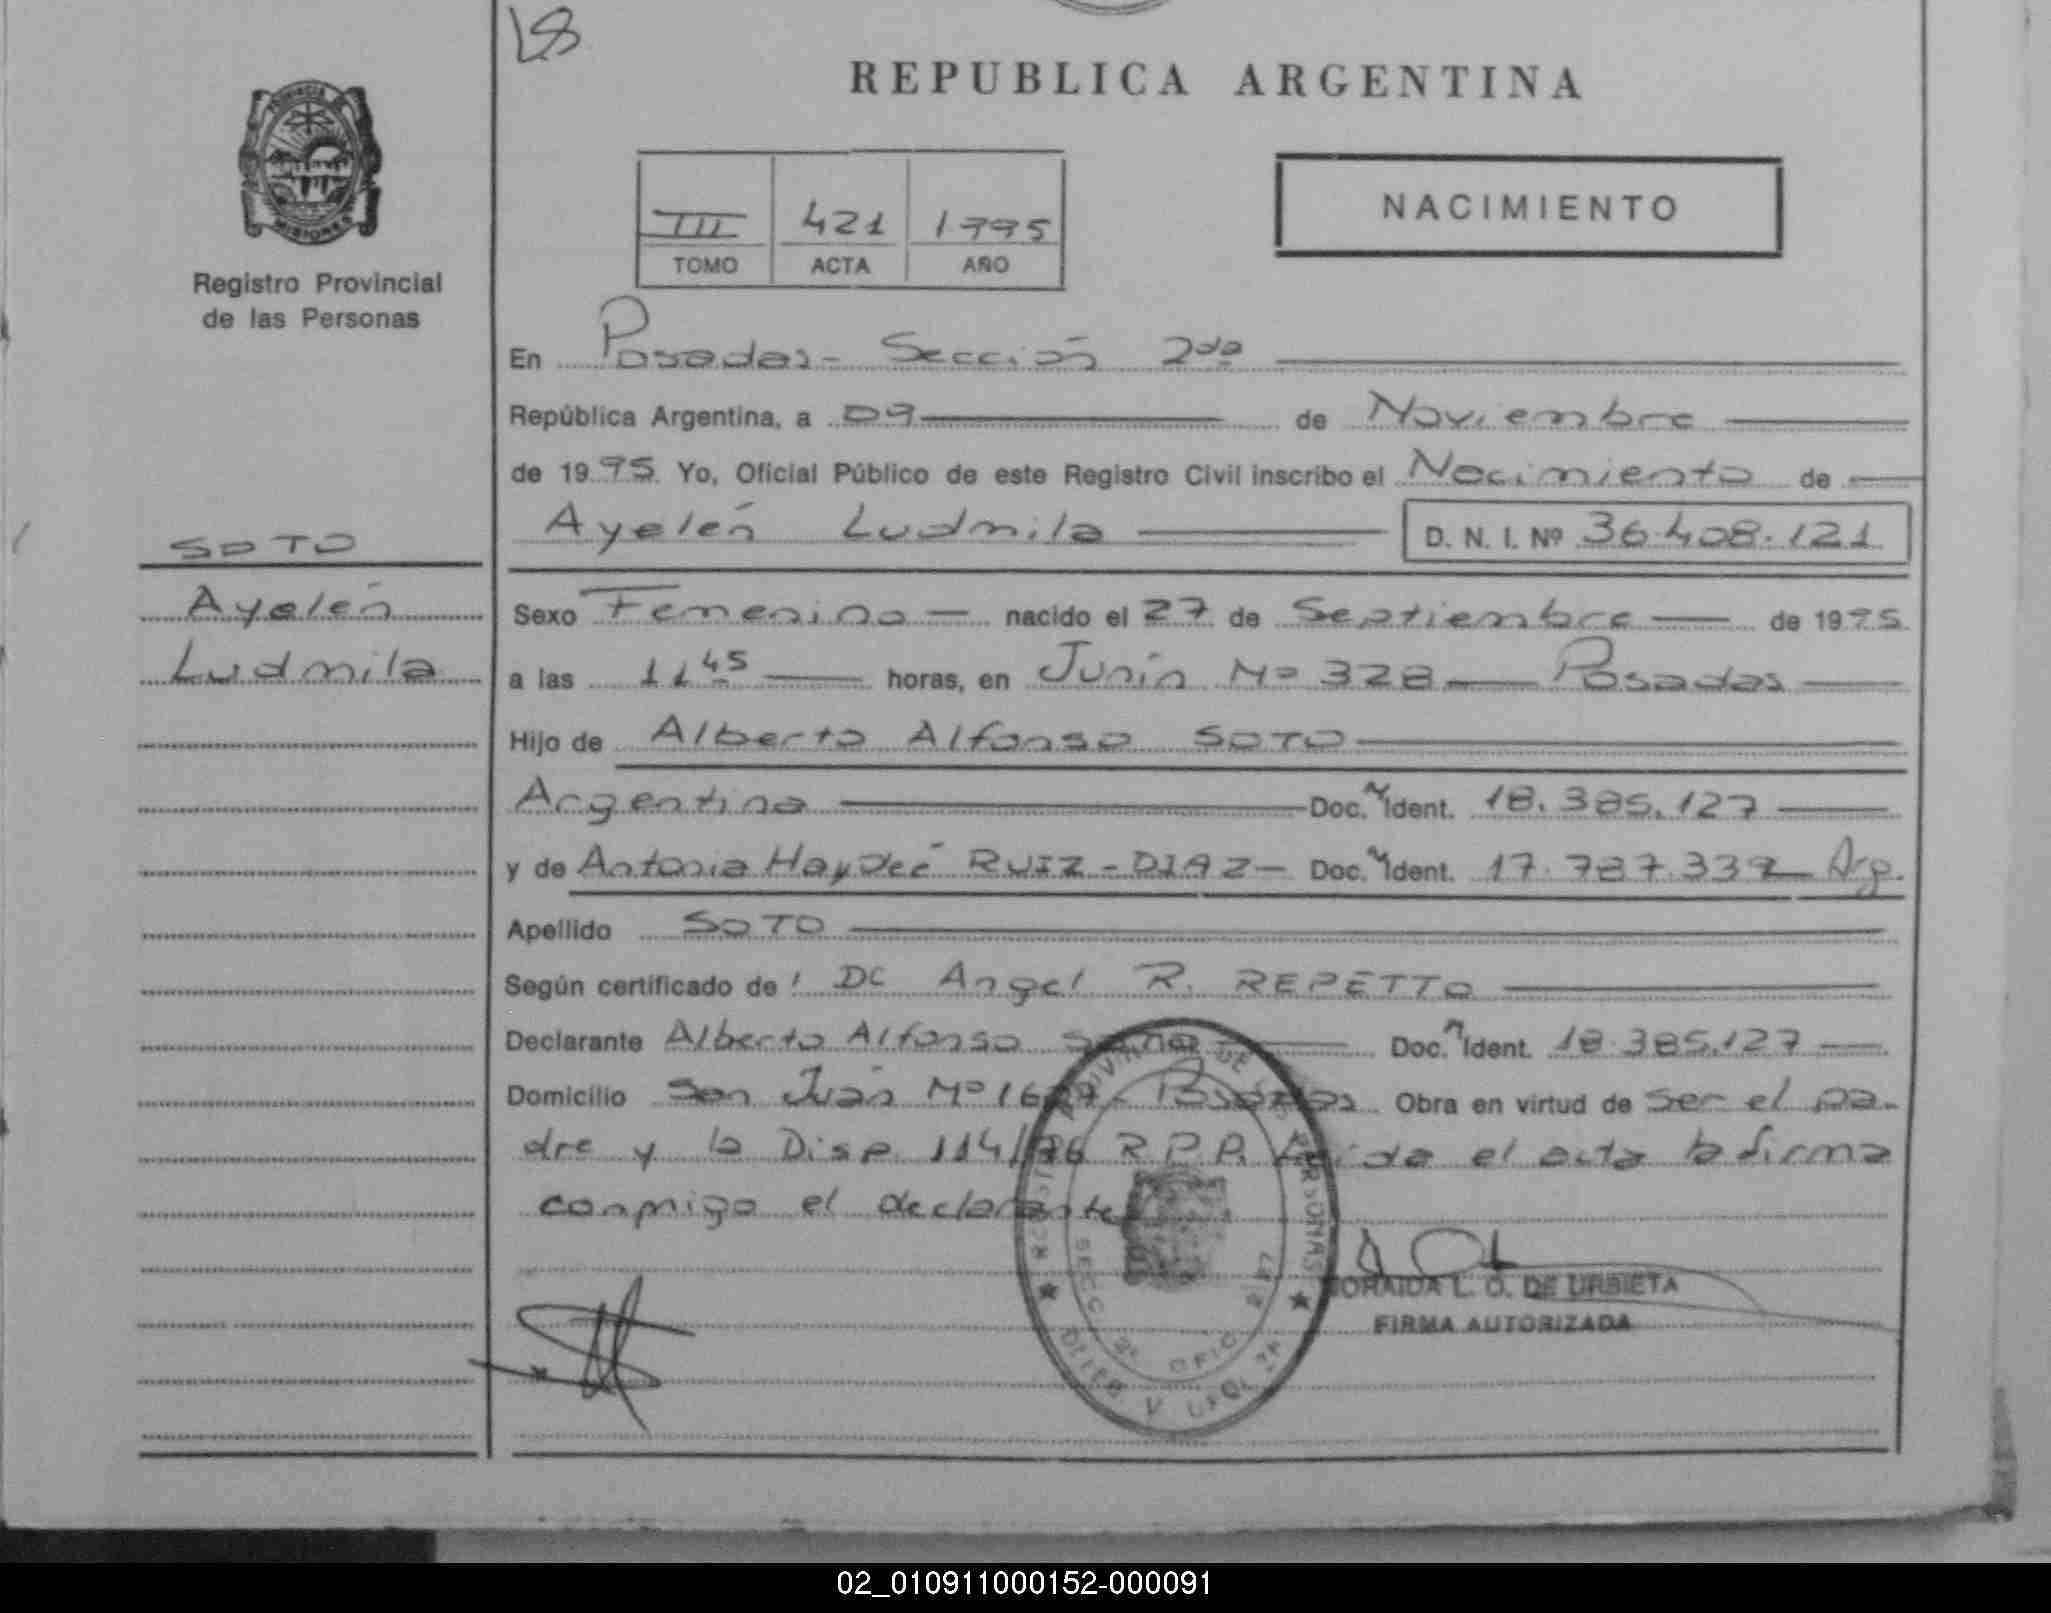 REPUBLICA ARGENTINA
PROVINCIA DE
MISIONES
Registro Provincial
de las Personas
III 421 1995
TOMO ACTA AÑO
NACIMIENTO
En Posadas - Sección 2da
República Argentina, a 09 de Noviembre
de 1995 Yo, Oficial Público de este Registro Civil inscribo el Nacimiento de
Ayelén Ludmila D. N. I. Nº 36.408.121
SOTO
Ayelén
Ludmila
Sexo Femenino nacido el 27 de Septiembre de 1995
a las 11 45 horas, en Junín Nº 328 Posadas
Hijo de Alberto Alfonso SOTO
Argentino Doc. Ident. 18.385.127
y de Antonia Haydeé RUIZ - DIAZ - Doc. Ident. 17.787.339 Arg.
Apellido SOTO
Según certificado de Angel R. REPETTO
Declarante Alberto Alfonso Doc. Ident. 18.385.127
Domicilio San Juan Nº Posadas Obra en virtud de Ser el pa-
dre y la Disp. 114/76 R.P.P. Leída el acta la firma
conmigo el declarante
L. O. DE URBIETA
FIRMA AUTORIZADA
02_010911000152-000091